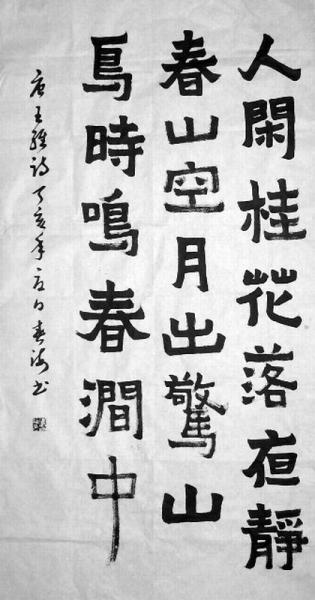 人閑桂花落夜靜
春山空月出驚山
鳥時鳴春澗中
唐王維詩丁亥年